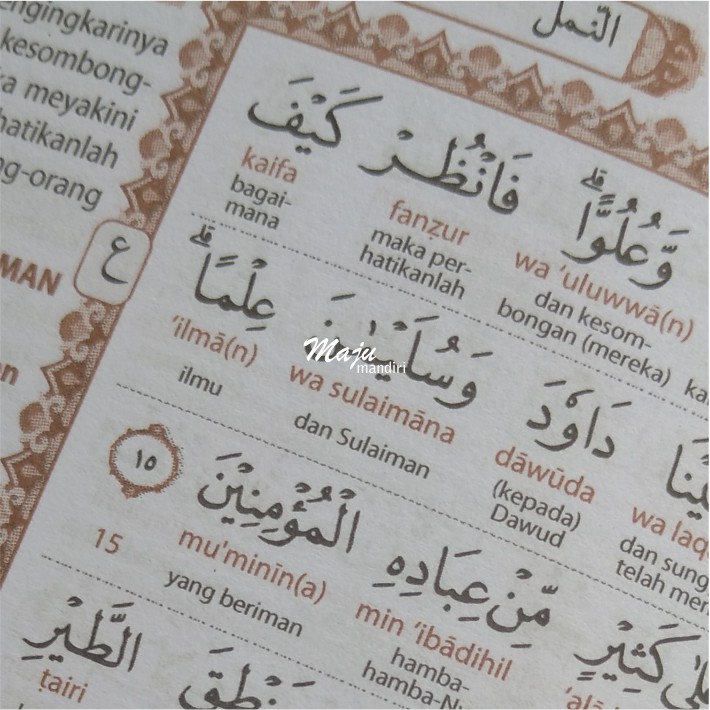 النّمل
ngingkarinya
kesombong-
a meyakini
hatikanlah
ng-orang
MAN
ع
وَّعُلُوًّاۗ فَانْظُرْ كَيْفَ
wa 'uluwwā(n) fanẓur kaifa
dan kesom-
bongan (mereka) maka per-
hatikanlah bagai-
mana
دَاوٗدَ وَسُلَيْمٰنَ عِلْمًاۗ
wa laq dāwūda wa sulaimāna 'ilmā(n)
dan sung
telah mem (kepada)
Dawud dan Sulaiman ilmu
Maju
mandiri
كَثِيْرٍ مِّنْ عِبَادِهِ الْمُؤْمِنِيْنَ ١٥
'alā min 'ibādihil mu'minīn(a) 15
hamba-
hamba-N yang beriman
الطَّيْرِ
ṭairi